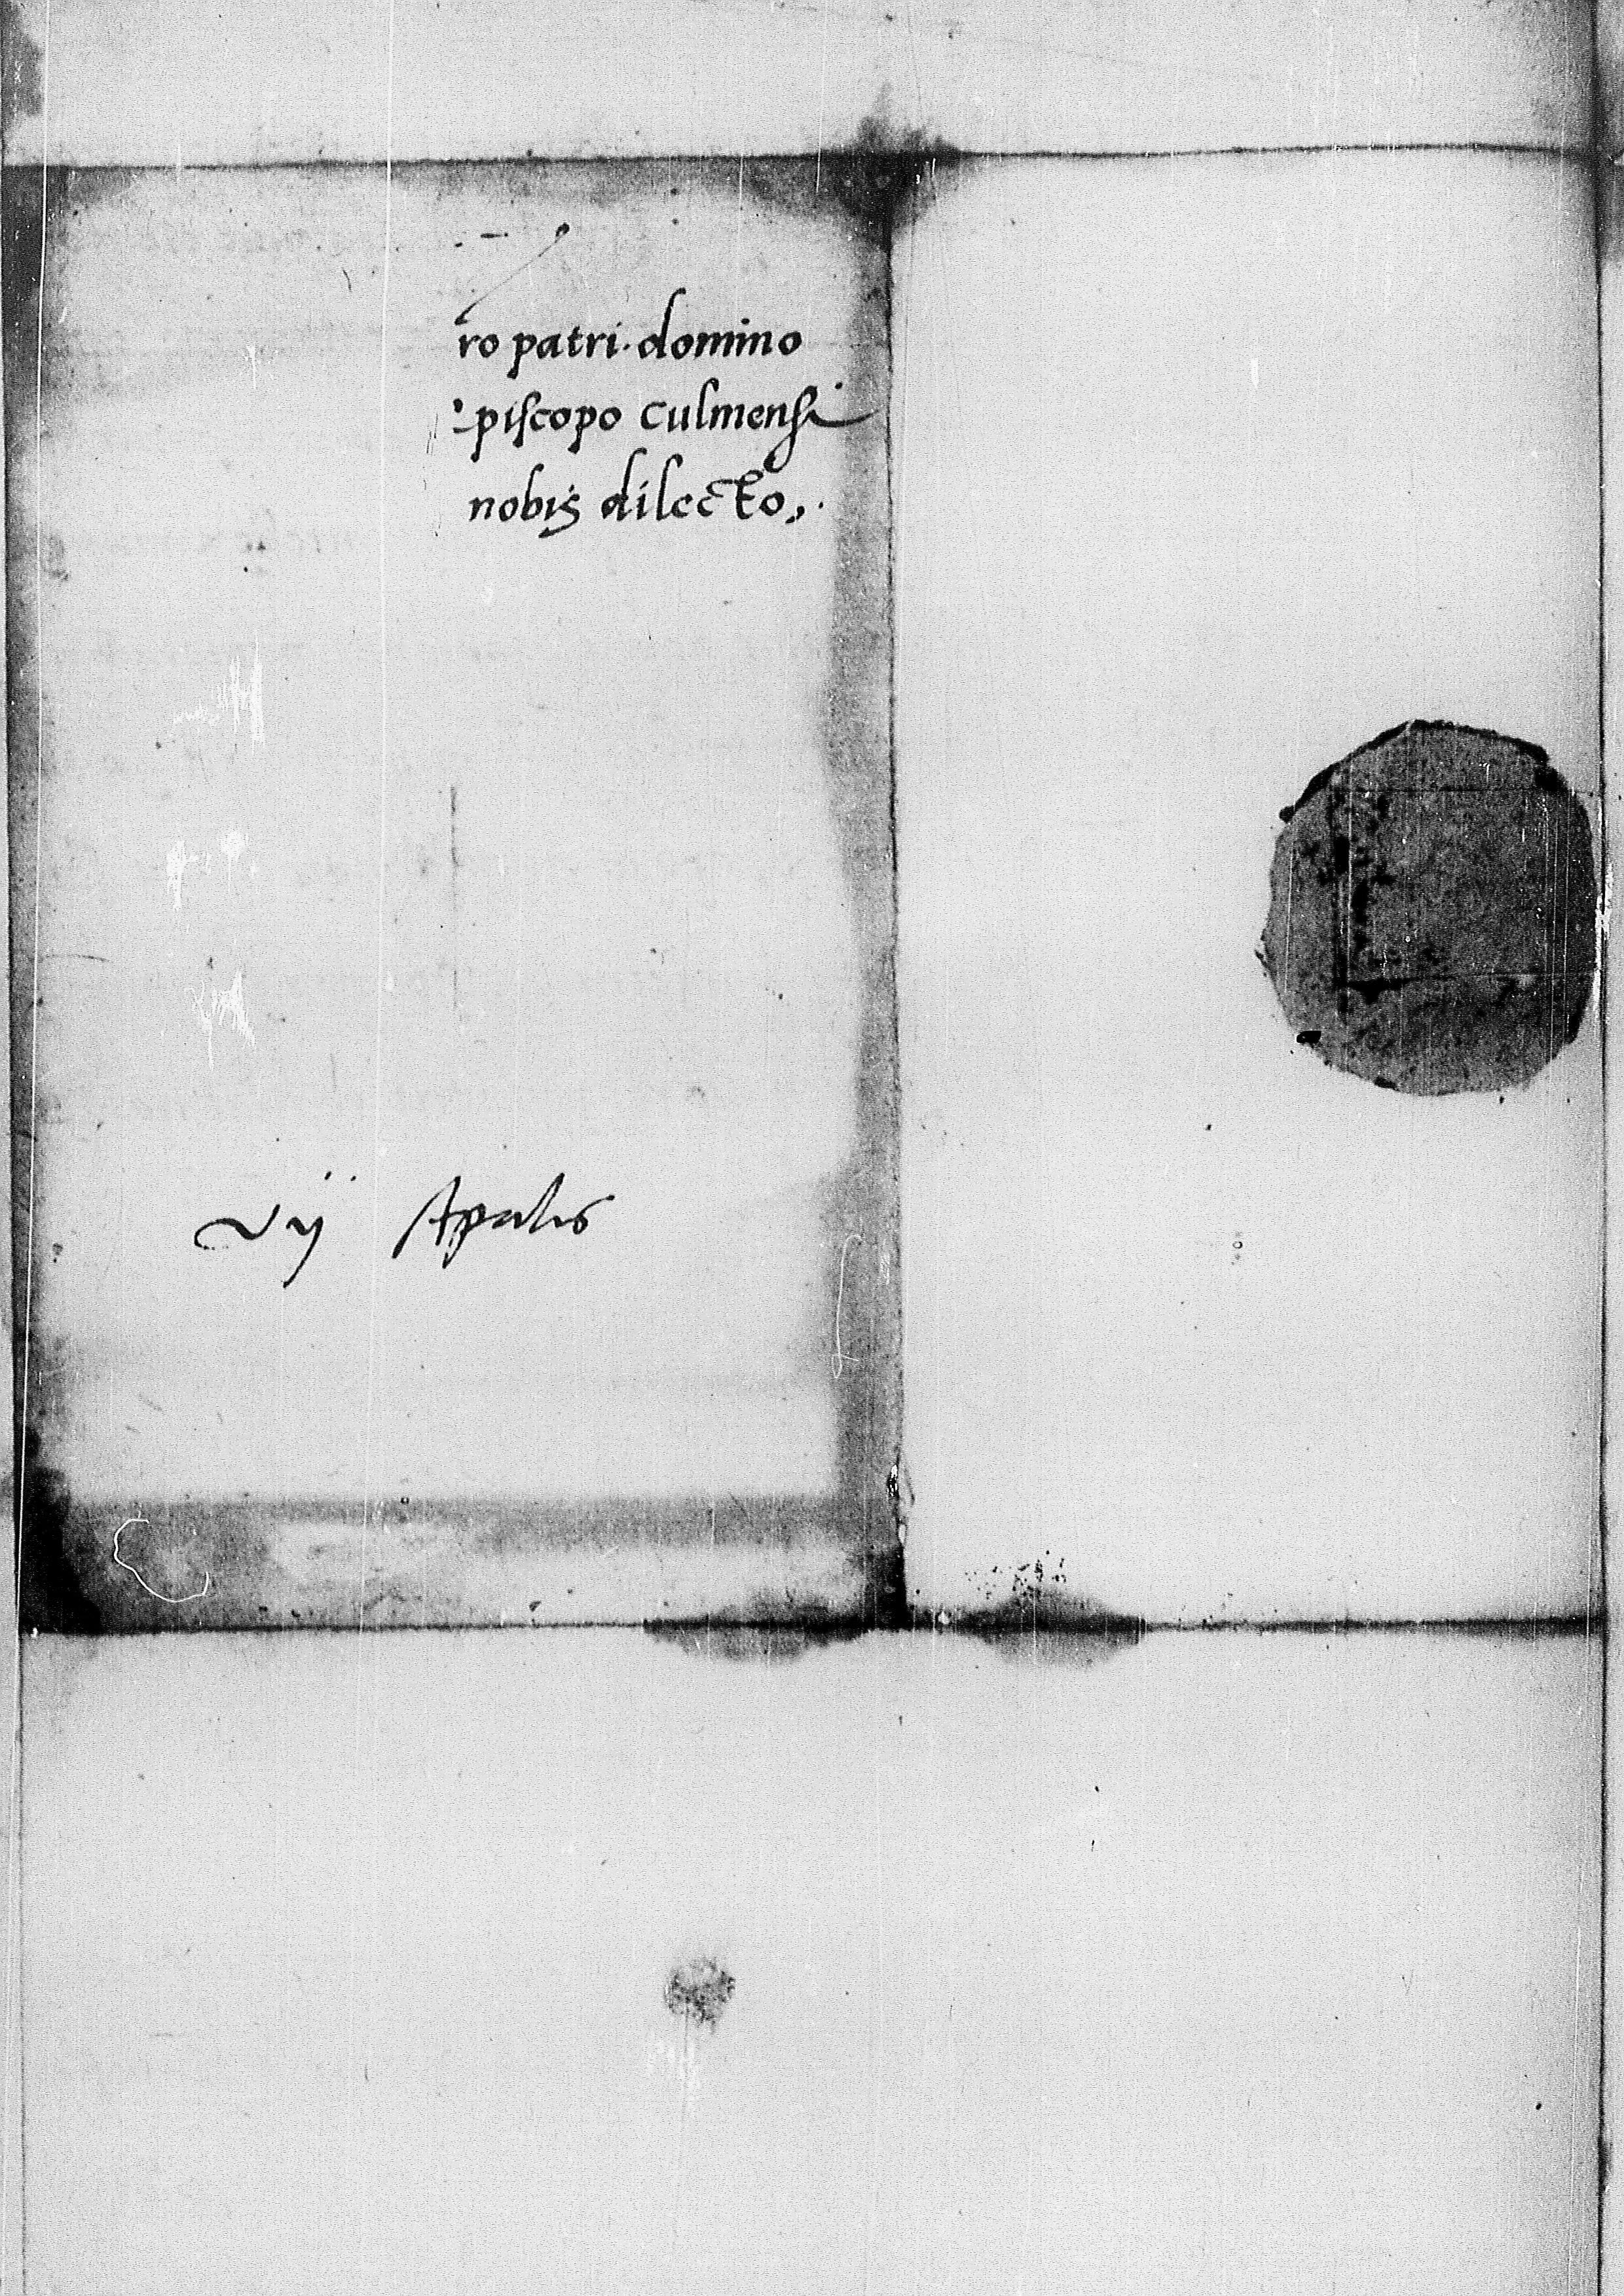 ro patri domino
piscopo Culmensi
nobis dilecto.
vij Aprilis